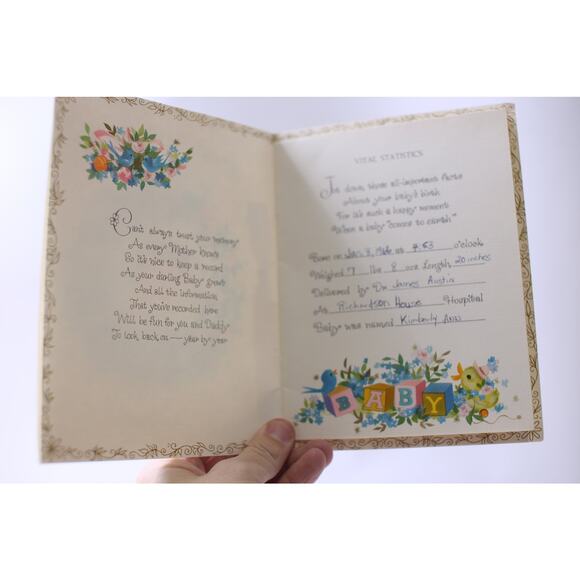 Can't always trust your memory
As every Mother knows
So it's nice to keep a record
As your darling Baby grows
And all the information
That you've recorded here
Will be fun for you and Daddy
To look back on — year by year
VITAL STATISTICS
Jot down these all-important facts
About your baby's birth
For it's such a happy moment
When a baby "comes to earth"
Born on Jan. 3, 1966 at 4:53 o'clock
Weighed 7 lbs 8 ozs Length 20 inches
Delivered by Dr. James Austin
At Richardson House Hospital
Baby was named Kimberly Ann
BABY